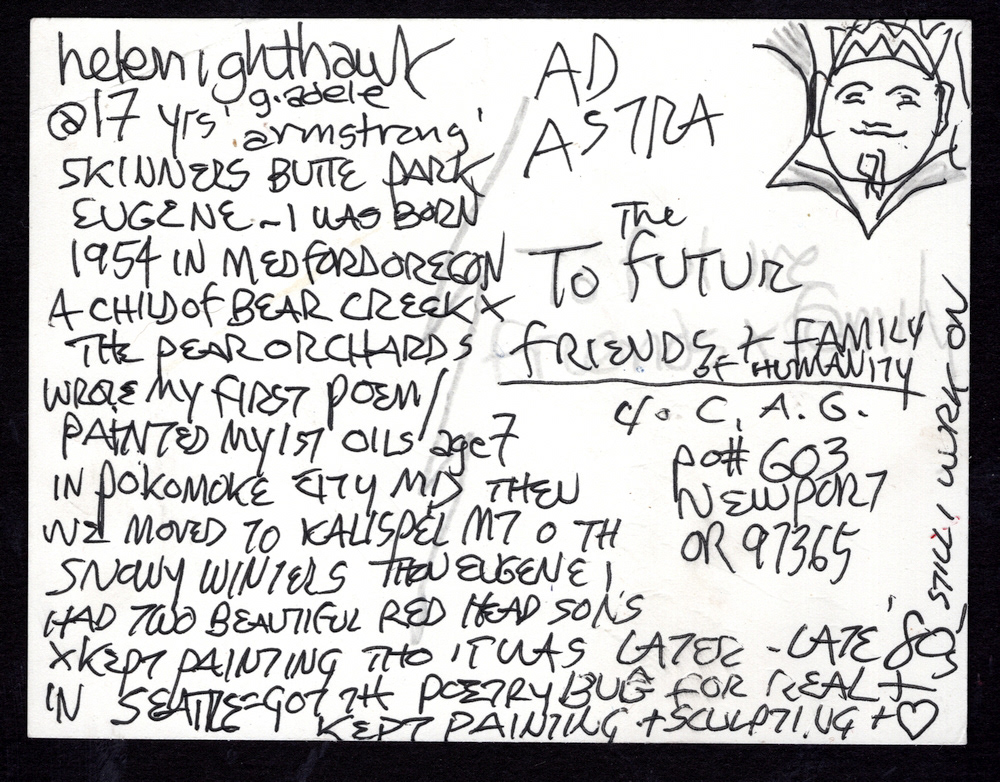 helenighthawk
@17 yrs' g. adele
'armstrong'
SKINNERS BUTTE PARK
EUGENE ~ I WAS BORN
1954 IN MEDFORD OREGON
A CHILD of BEAR CREEK X
THE PEAR ORCHARDS
WROTE MY FIRST POEM/
PAINTED MY 1ST OILS age 7
IN POKOMOKE CITY MD THEN
WE MOVED TO KALISPEL MT O TH
SNOWY WINTERS THEN EUGENE I
HAD TWO BEAUTIFUL RED HEAD SONS
X KEPT PAINTING THO IT WAS LATER - LATE '80s
IN SEATTLE - GOT TH POETRY BUG FOR REAL +
KEPT PAINTING + SCULPTING + ♡
STILL I WORK ON
AD
ASTRA
The
To FUTUR
FRIENDS + FAMILY
OF HUMANITY
c/o C. A. G.
PO# 603
NEWPORT
OR 97365